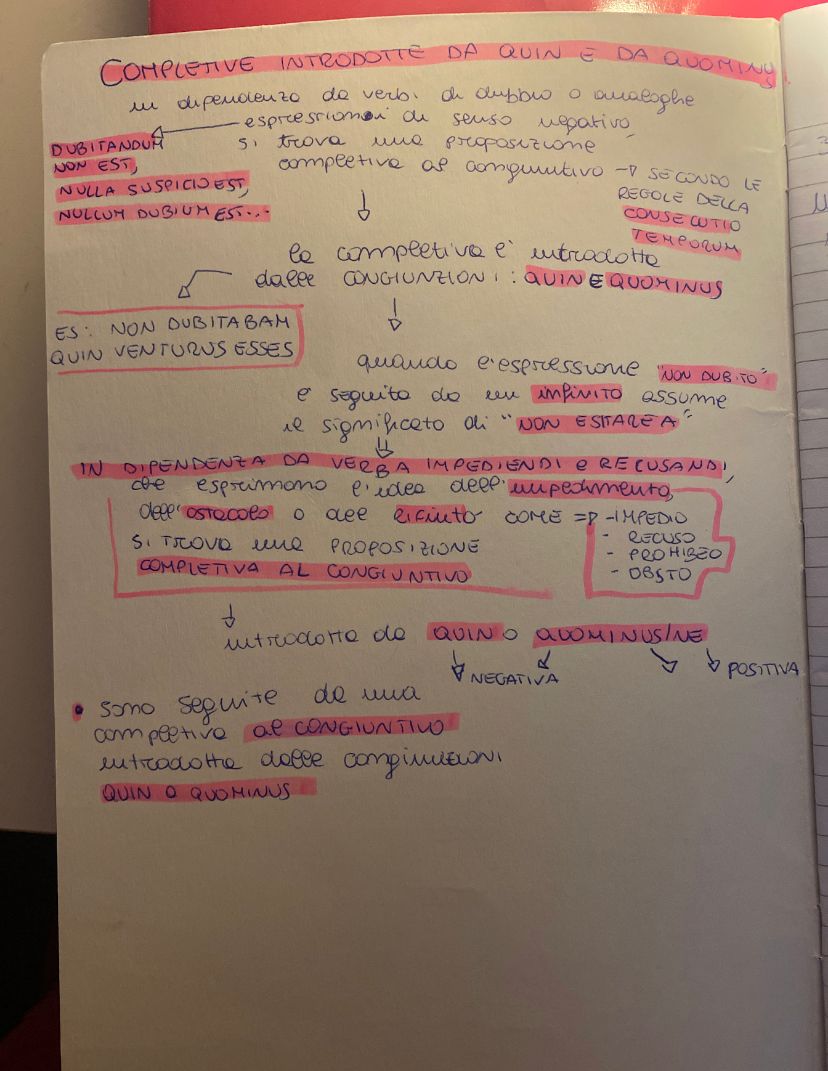 COMPLETIVE INTRODOTTE DA QUIN E DA QUOMINUS
in dipendenza da verbi di dubbio o analoghe
espressioni di senso negativo,
si trova una proposizione
completiva al congiuntivo → SECONDO LE
REGOLE DELLA
CONSECUTIO
TEMPORUM
DUBITANDUM
NON EST,
NULLA SUSPICIO EST,
NULLUM DUBIUM EST...
la completiva è introdotta
dalle CONGIUNZIONI: QUIN E QUOMINUS
ES: NON DUBITABAM
QUIN VENTURUS ESSES
quando l'espressione "NON DUBITO"
è seguita da un infinito assume
il significato di "NON ESITARE A"
IN DIPENDENZA DA VERBA IMPEDIENDI e RECUSANDI,
che esprimono l'idea dell'impedimento,
dell'ostacolo o del rifiuto COME ⇒ - IMPEDIO
- RECUSO
- PROHIBEO
- OBSTO
SI TROVA una PROPOSIZIONE
COMPLETIVA AL CONGIUNTIVO
introdotta da QUIN o QUOMINUS/NE
NEGATIVA
POSITIVA
• sono seguite da una
completiva al CONGIUNTIVO
introdotta dalle congiunzioni
QUIN O QUOMINUS